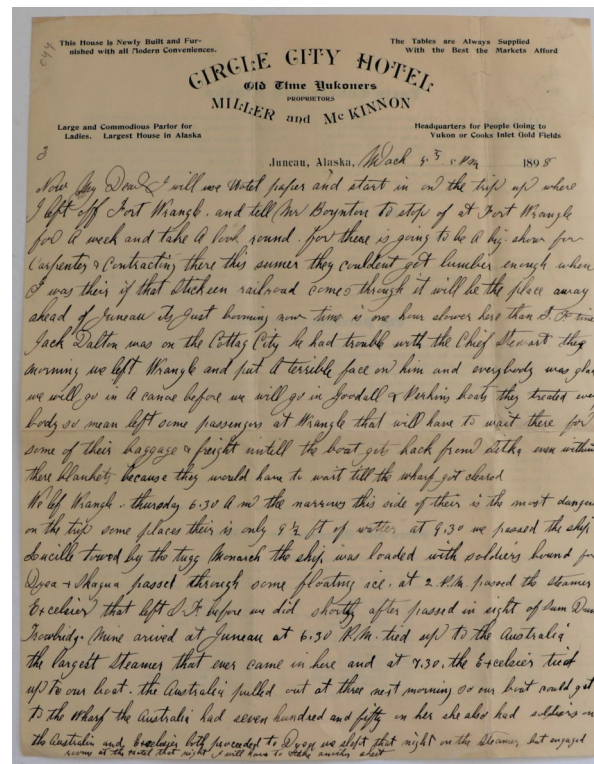 This House is Newly Built and Fur-
nished with all Modern Conveniences.
The Tables are Always Supplied
With the Best the Markets Afford
CIRCLE CITY HOTEL
Old Time Yukoners
PROPRIETORS
MILLER and McKINNON
Large and Commodious Parlor for
Ladies. Largest House in Alaska
Headquarters for People Going to
Yukon or Cooks Inlet Gold Fields
3
Juneau, Alaska, 1898
Now My Dear I will use Hotel paper and start in on the trip up where
I left off Fort Wrangle. and tell Mr Boynton to stop of at Fort Wrangle
for a week and take a look round. for there is going to be a big show for
Carpenter & Contracting there this sumer they couldent get lumber enough when
I was their if that Stickeen railroad comes through it will be the place away
ahead of Juneau its just booming now time is one hour slower here than S.F. time
Jack Dalton was on the Cottag City he had trouble with the Chief Stewart the
morning we left Wrangle and put a terrible face on him and everybody was glad
we will go in a canoe before we will go in Goodall & Perkins boats they treated every
body so mean left some passengers at Wrangle that will have to wait there for
some of their baggage & freight intill the boat gets back from Sitka even without
there blankets because they would have to wait till the wharf got cleard
We left Wrangle thursday 6.30 A m the narrows this side of their is the most danger
on the trip some places their is only 9 1/2 ft of watter at 9.30 we passed the ship
Lucille towed by the tugg Monarch the ship was loaded with soldiers bound for
Dyea & Skagua passed through some floating ice. at 2 P.M. passed the steamer
Excelsier that left S.F. before we did shortly after passed in sight of Sum Dum
Trowbridge Mine arrived at Juneau at 6.30 P.M. tied up to the Australia
the largest steamer that ever came in here and at 7.30. the Excelsier tied
up to our boat. the Australia pulled out at three next morning so our boat could get
to the wharf the Australia had seven hundred and fifty on her she also had soldiers on
the Australia and Excelsier both proceeded to Dyea we slept that night on the steamer but engaged
rooms at the hotel that night I will have to take another sheet